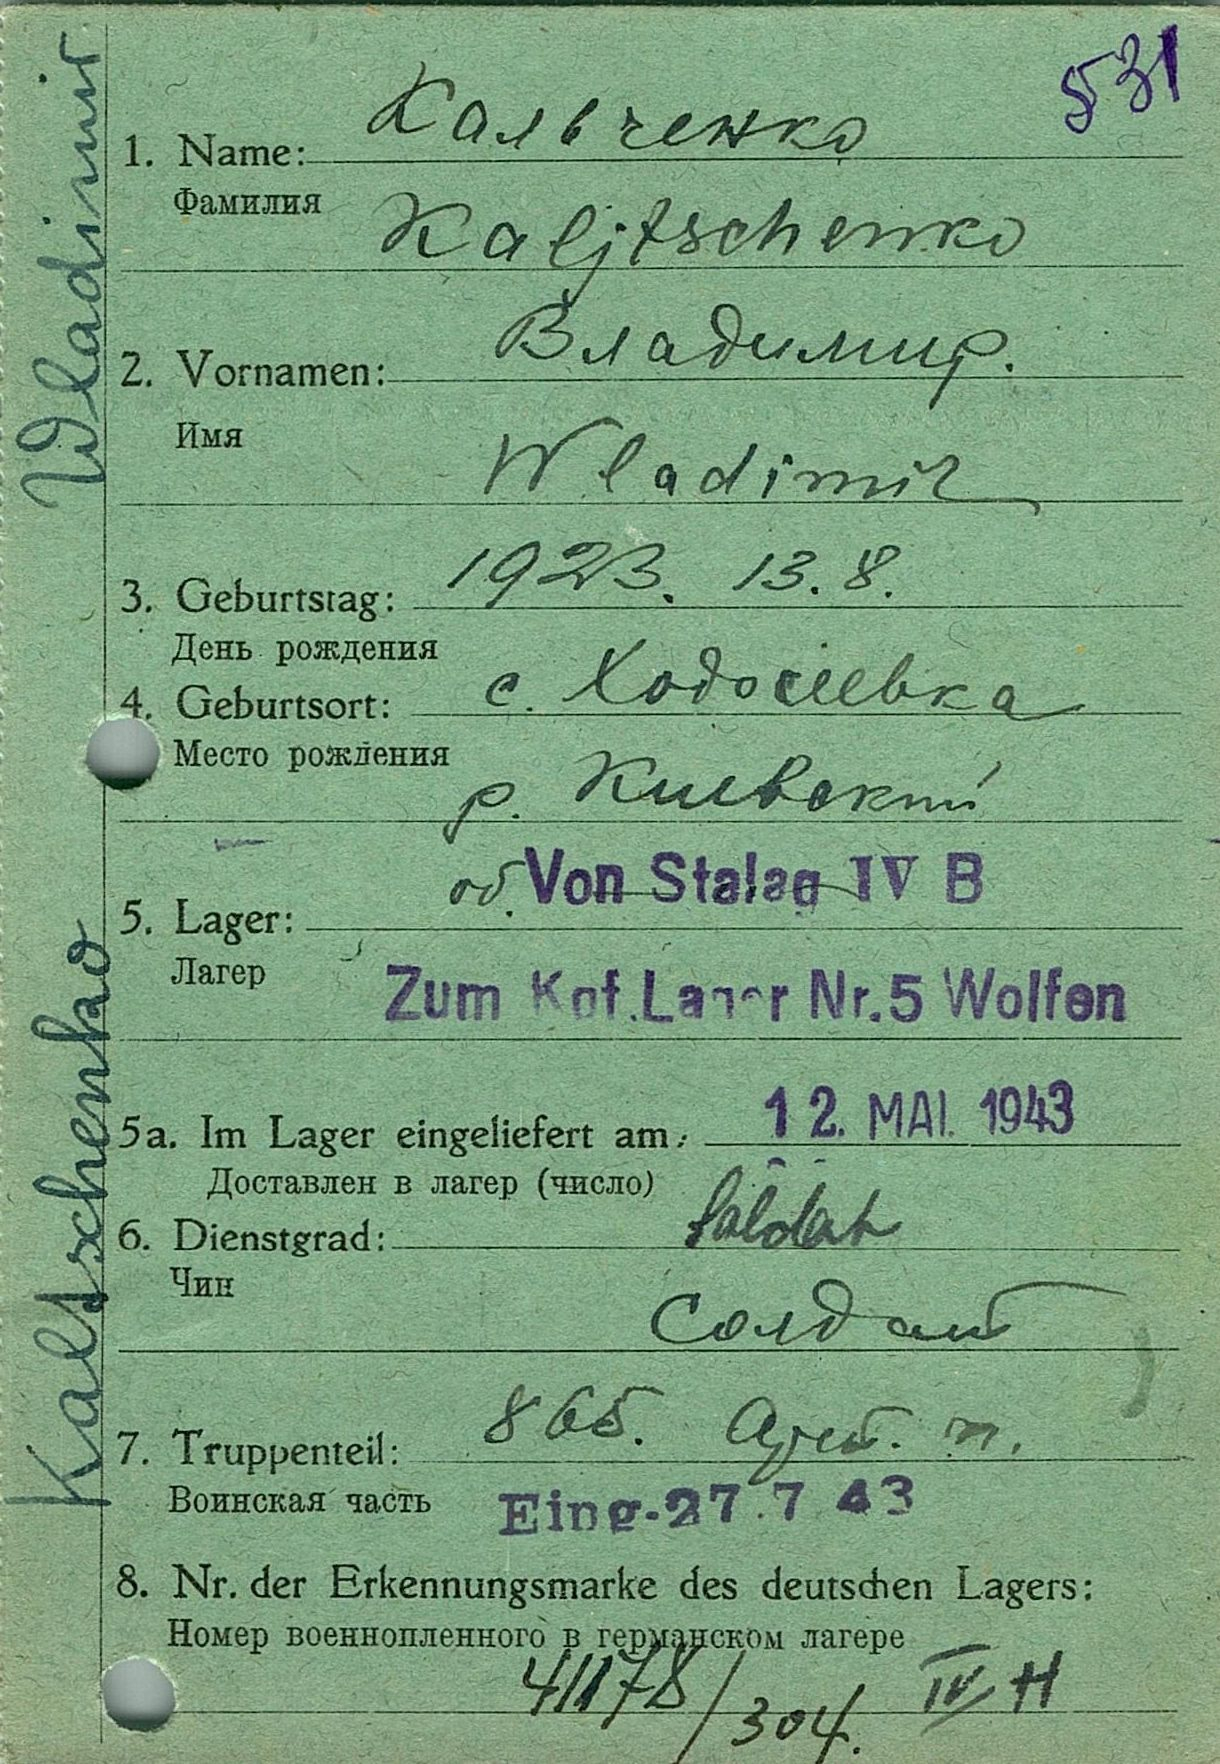 531
Кальченко
1. Name:
Фамилия
Kaljtschenko
Владимир.
2. Vornamen:
Имя
Wladimir
1923. 13.8.
3. Geburtstag:
День рождения
с. Ходосиевка
4. Geburtsort:
Место рождения
р. Киевский
об. Von Stalag IV B
5. Lager:
Лагер
Zum Kgf. Lager Nr. 5 Wolfen
5a. Im Lager eingeliefert am: 12. MAI. 1943
Доставлен в лагер (число)
6. Dienstgrad: Soldat
Чин
Солдат
7. Truppenteil: 865. Арт. п.
Воинская часть
Eing. 27.7 43
8. Nr. der Erkennungsmarke des deutschen Lagers:
Номер военнопленного в германском лагере
41178/304. IV H
Kaltschenko Wladimir